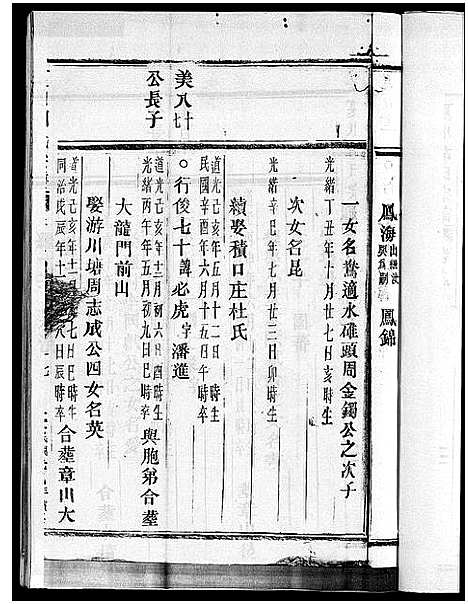 鳳海 鳳錦
一女名鴦適水碓頭周金鐲公之次子
光緒丁丑年十月廿七日亥時生
次女名昆
光緒辛巳年七月廿三日卯時生
續娶積口庄杜氏
道光己亥年五月十二日 時生
民國辛酉年六月十五日午時卒
美八十七公長子
○行俊七十諱必虎字潘進
道光己亥年 月初六日酉時生
光緒丙午年五月初九日巳時卒
與胞弟合塟
大龍門前山
娶游川塘周志成公四女名英
道光己亥年十二月 七日巳時生
同治戊辰年十 八日辰時卒
合塟章山大